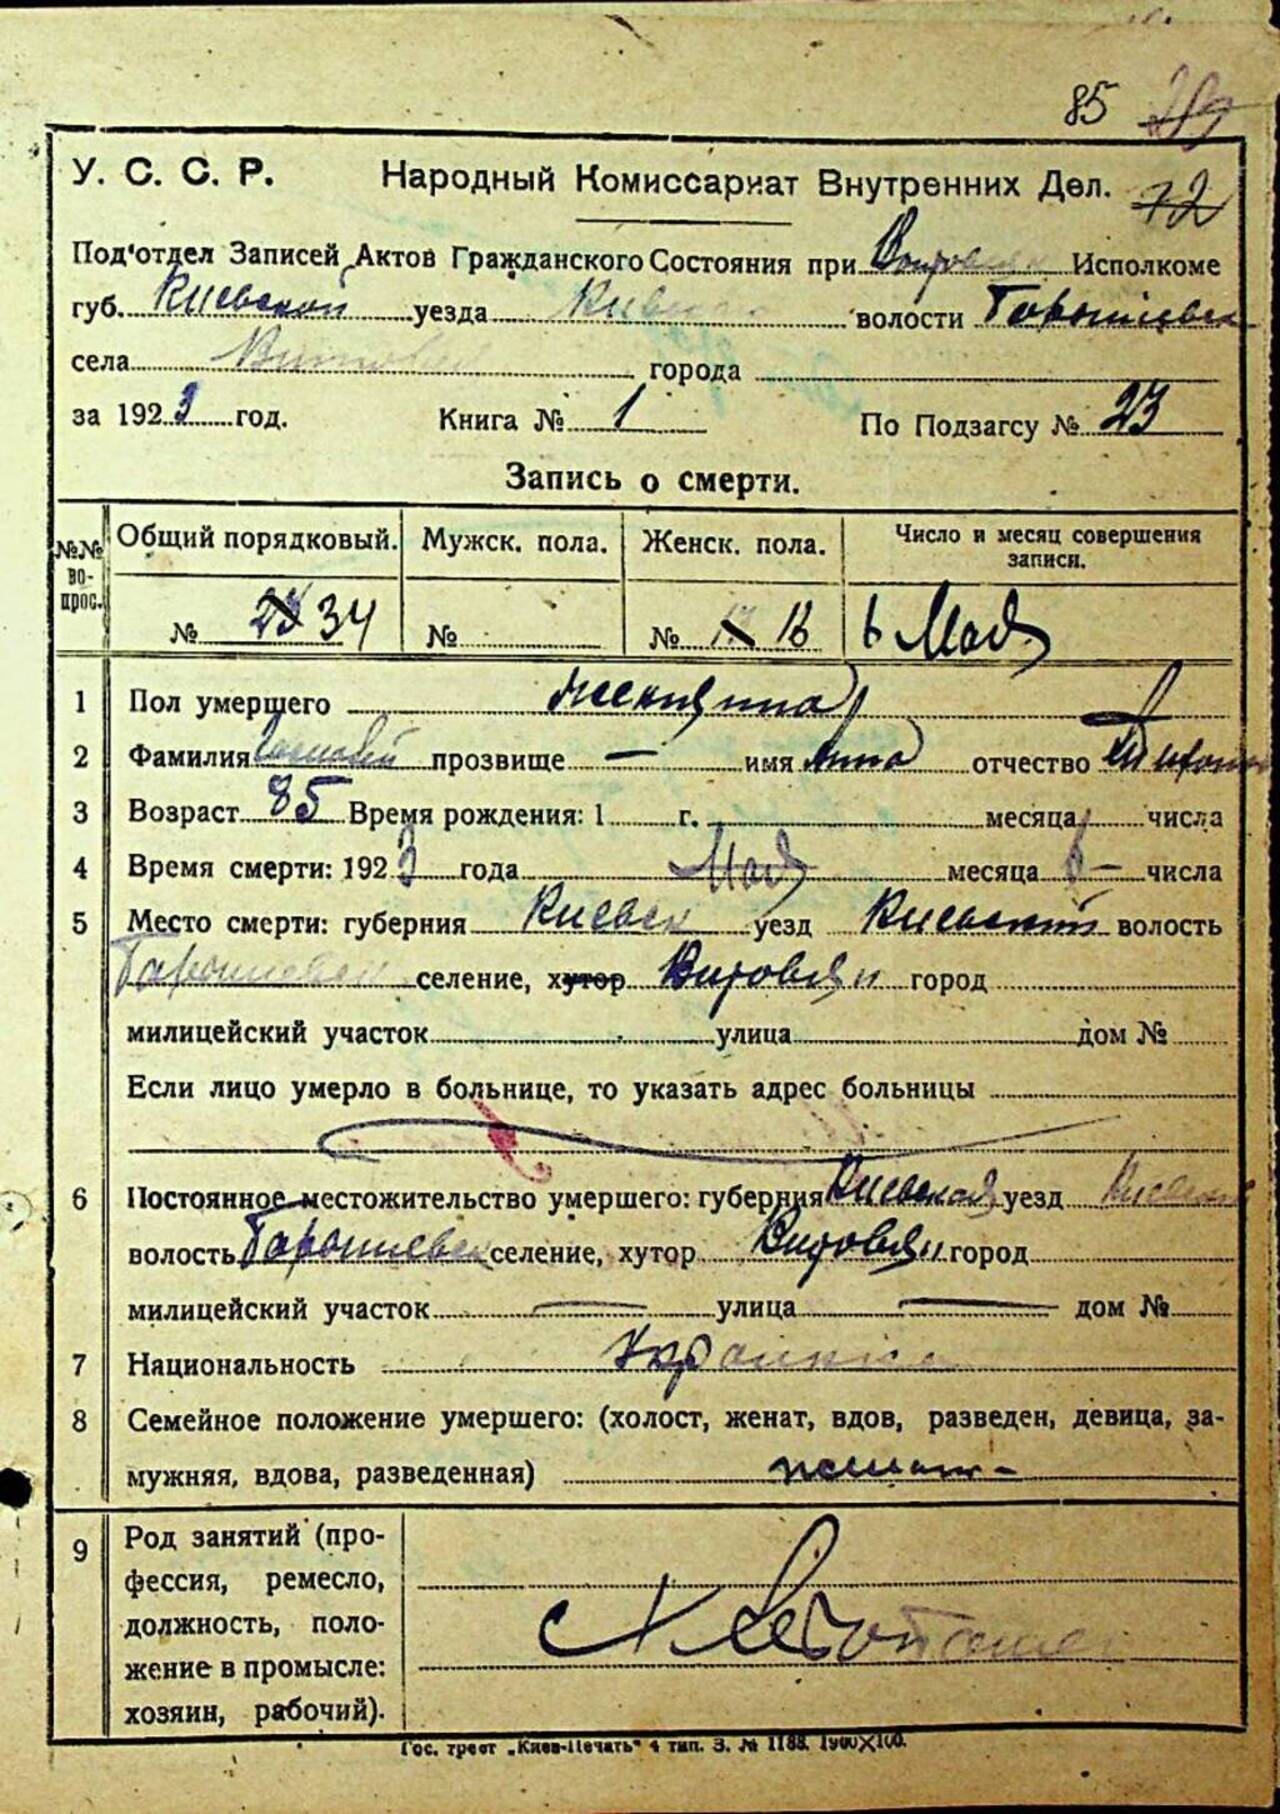 85
У. С. С. Р. Народный Комиссариат Внутренних Дел. 72
Под'отдел Записей Актов Гражданского Состояния при Исполкоме
губ. Киевской уезда волости
села города
за 1923 год. Книга № 1 По Подзагсу № 23
Запись о смерти.
№№ во- прос. Общий порядковый. Мужск. пола. Женск. пола. Число и месяц совершения записи.
№ 34 № № 16 6 Мая
1 Пол умершего женщина
2 Фамилия прозвище — имя Анна отчество
3 Возраст 85 Время рождения: 1 г. месяца числа
4 Время смерти: 1923 года Мая месяца 6 — числа
5 Место смерти: губерния Киевск уезд Киевский волость
селение, хутор город
милицейский участок улица дом №
Если лицо умерло в больнице, то указать адрес больницы
6 Постоянное местожительство умершего: губерния Киевская уезд
волость селение, хутор город
милицейский участок — улица — дом №
7 Национальность Украинка
8 Семейное положение умершего: (холост, женат, вдов, разведен, девица, за-
мужняя, вдова, разведенная)
9 Род занятий (про-
фессия, ремесло,
должность, поло-
жение в промысле:
хозяин, рабочий).
Гос. трест „Киев-Печать" 4 тип. З. № 1188. 1900×100.